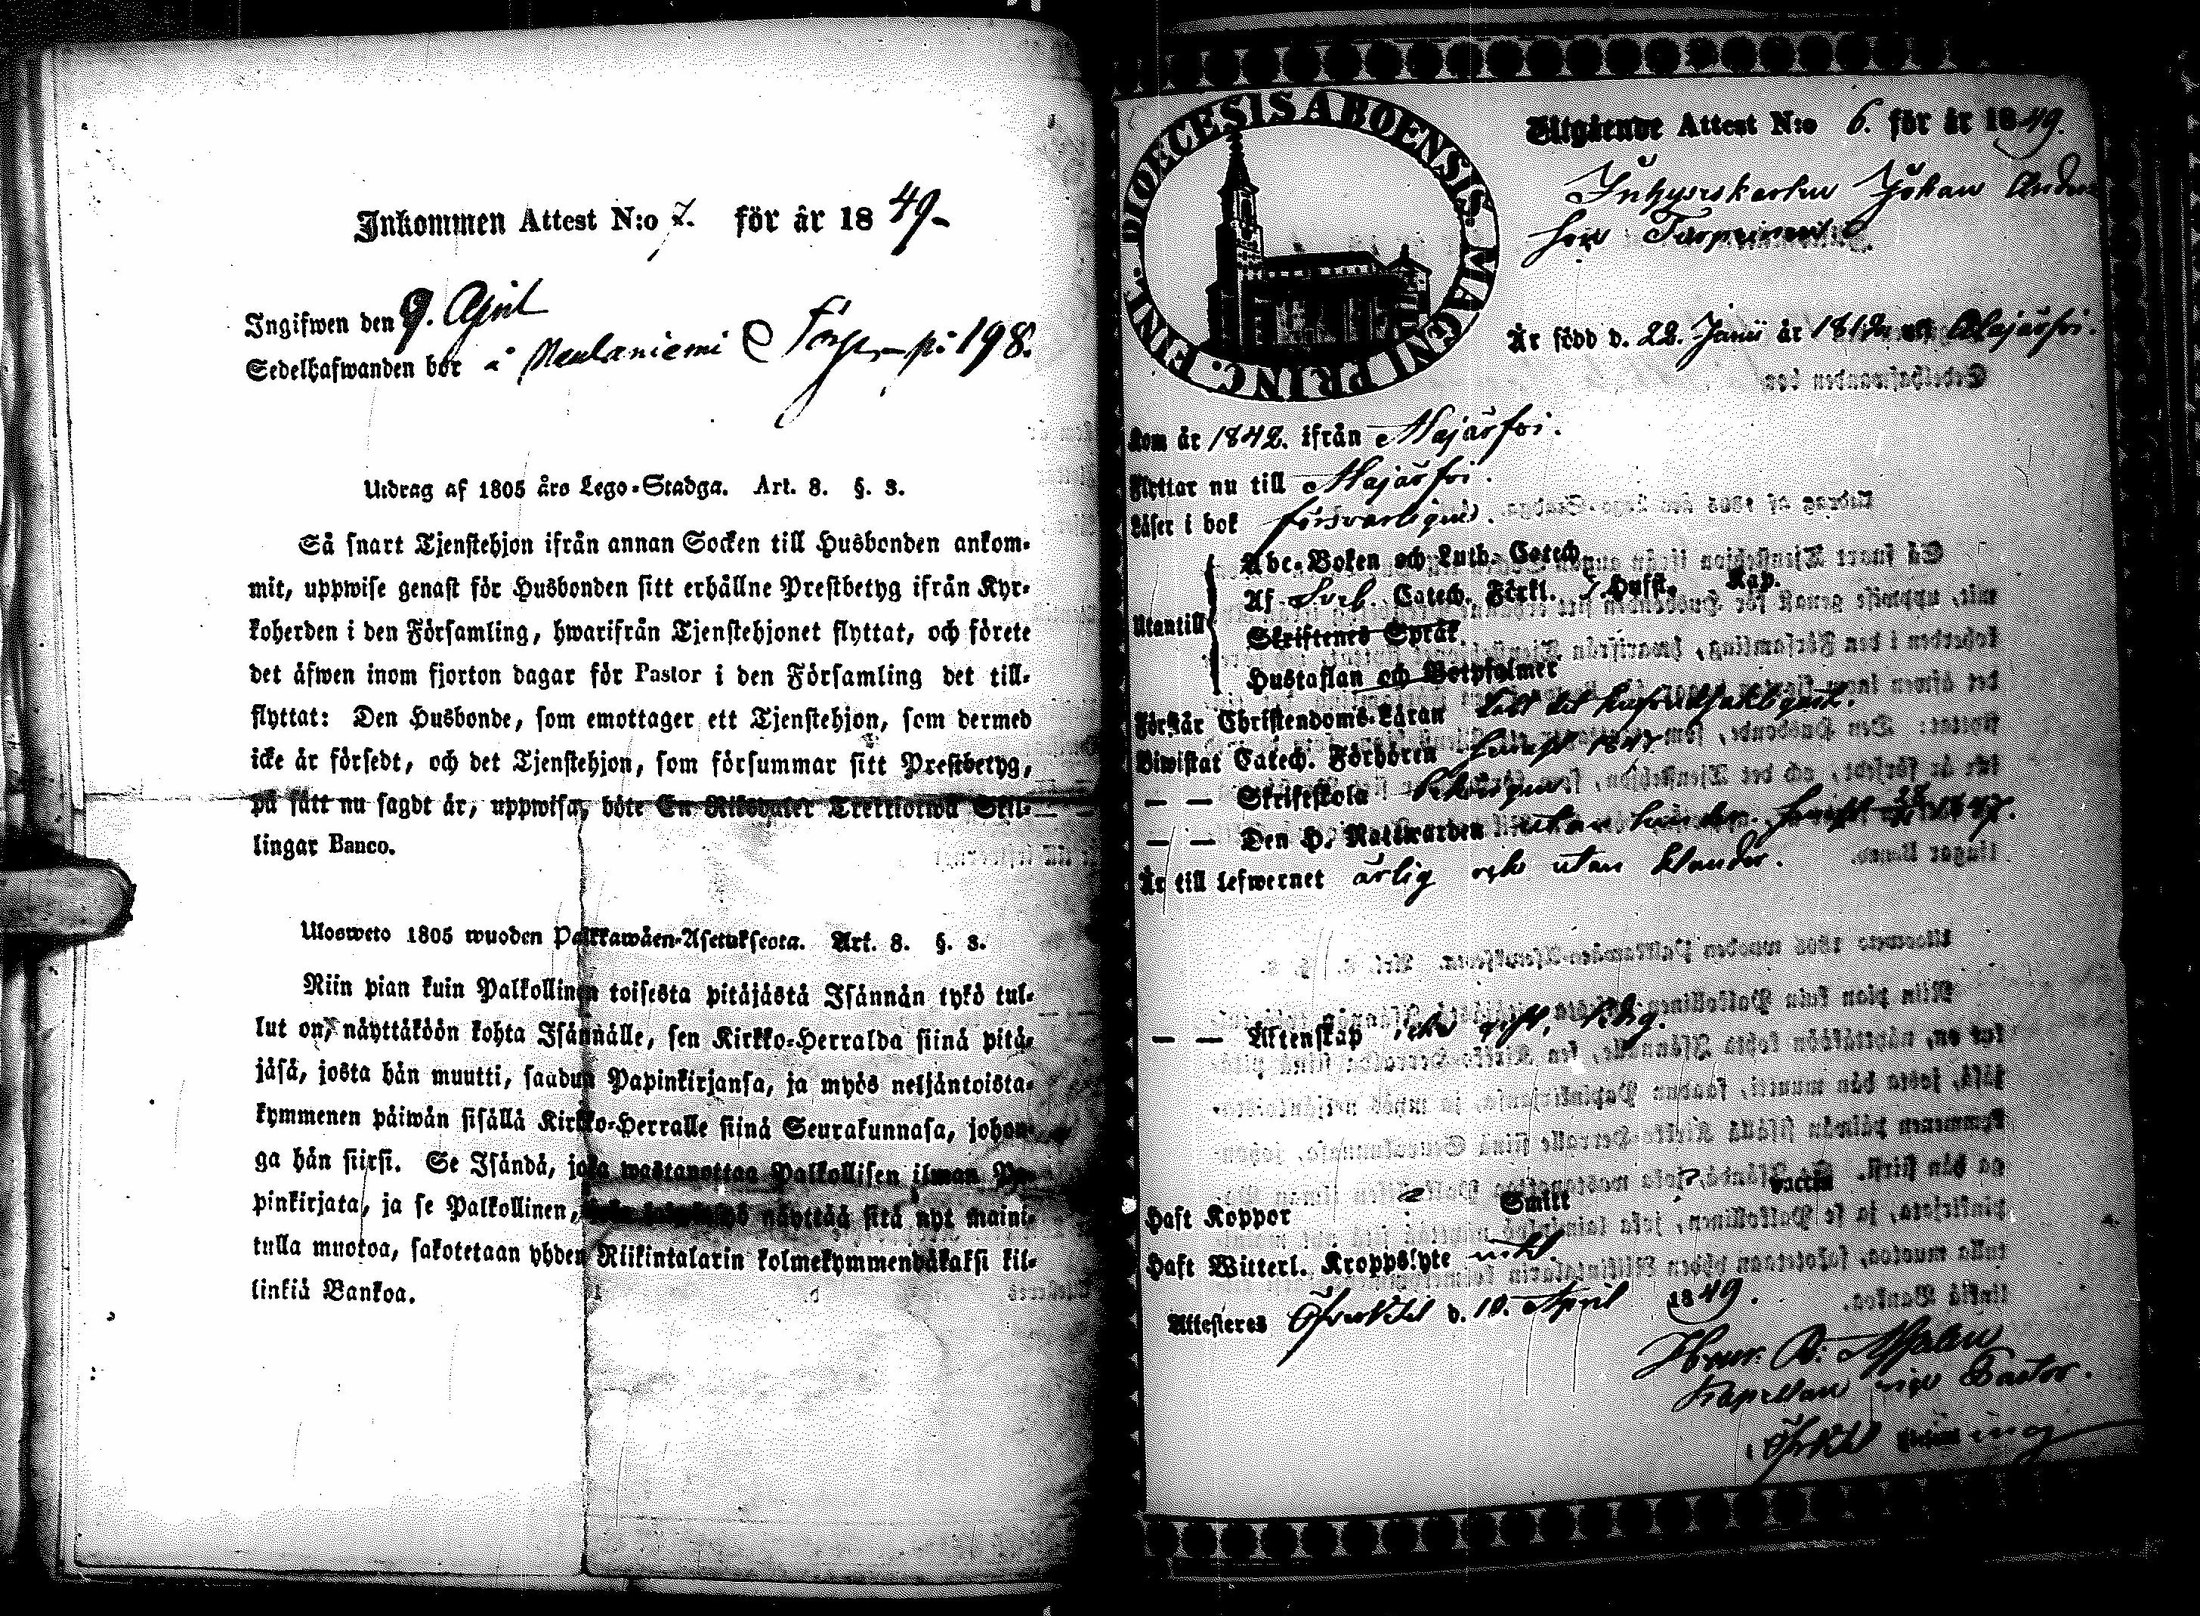 Inkommen Attest N:o 7. för år 1849-
Ingifwen den 9. April
Sedelhafwanden bor å Neulaniemi p: 198.
Utdrag af 1805 års Lego-Stadga. Art. 8. §. 3.
Så snart Tjenstehjon ifrån annan Socken till Husbonden ankom-
mit, uppwise genast för Husbonden sitt erhållne Prestbetyg ifrån Kyr-
koherden i den Församling, hwarifrån Tjenstehjonet flyttat, och förete
det äfwen inom fjorton dagar för Pastor i den Församling det till-
flyttat: Den Husbonde, som emottager ett Tjenstehjon, som dermed
icke är försedt, och det Tjenstehjon, som försummar sitt Prestbetyg,
på sätt nu sagdt är, uppwisa, böte En Riksdaler Trettiotwå Skil-
lingar Banco.
Ulosweto 1805 wuoden Palkkawäen-Asetuksesta. Art. 8. §. 3.
Niin pian kuin Palkollinen toisesta pitäjästä Isännän tykö tul-
lut on, näyttäköön kohta Isännälle, sen Kirkko-Herralda siinä pitä-
jäsä, josta hän muutti, saadun Papinkirjansa, ja myös neljäntoista-
kymmenen päiwän sisällä Kirkko-Herralle siinä Seurakunnasa, johon-
ga hän siirsi. Se Isändä, joka wastanottaa Palkollisen ilman Pa-
pinkirjata, ja se Palkollinen, näyttää sitä nyt maini-
tulla muotoa, sakotetaan yhden Riikintalarin kolmekymmendäkaksi kil-
linkiä Bankoa.
DIOECESIS ABOENSIS. MAGNI PRINC. FINL.
Utgående Attest N:o 6. för år 1849.
Inhyseskarlen Johan Anders
son
Är född d. 22. Junii år 1812 uti Alajärfvi.
Kom år 1842. ifrån Alajärfvi.
Flyttar nu till Alajärfvi.
Läser i bok försvarligen.
Utantill
Abc-Boken och Luth. Catech.
Af Sveb. Catech. Förkl. 7. Huffst. Kap.
Skriftenes Språk
Hustaflan och Botpsalmer
Förstår Christendoms-Läran
Biwistat Catech. Förhören senast 1847.
— — Skriftskola
— — Den H. Nattwarden utan hinder. senast 1847.
Är till lefwernet ärlig och utan klander.
— — Äktenskap icke gift, ledig.
Haft Koppor Smitt vaccin
Haft Witterl. Kroppslyte intet
Attesteras d. 10. April 1849.
Kapellan och Pastor.